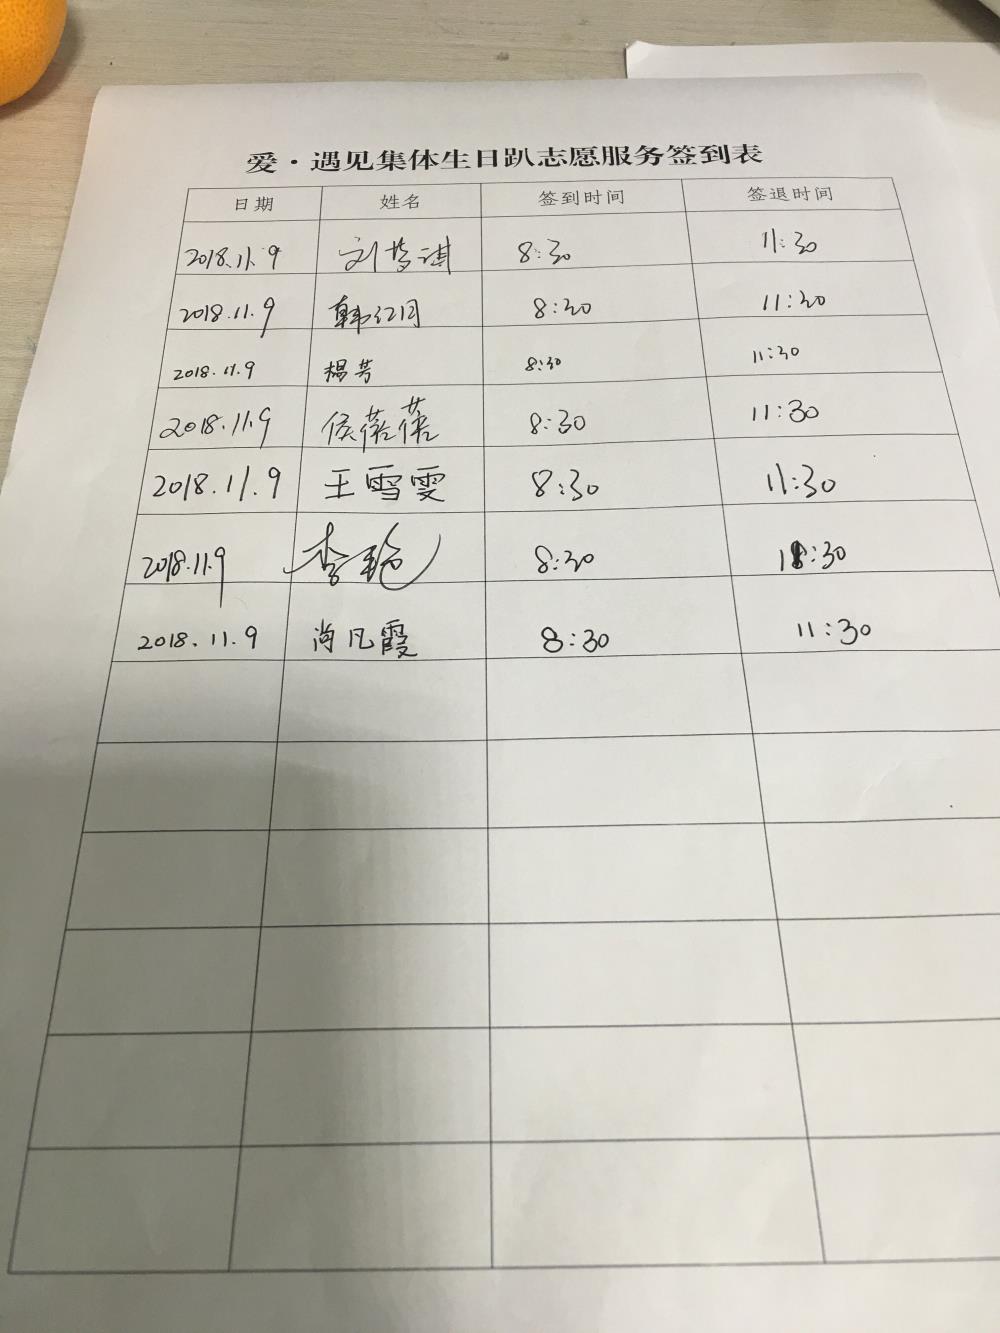 爱·遇见集体生日趴志愿服务签到表
日期 姓名 签到时间 签退时间
2018.11.9 刘梦琪 8:30 11:30
2018.11.9 韩红月 8:30 11:30
2018.11.9 杨芳 8:30 11:30
2018.11.9 侯蓓蓓 8:30 11:30
2018.11.9 王雪雯 8:30 11:30
2018.11.9 李艳 8:30 11:30
2018.11.9 尚凡霞 8:30 11:30